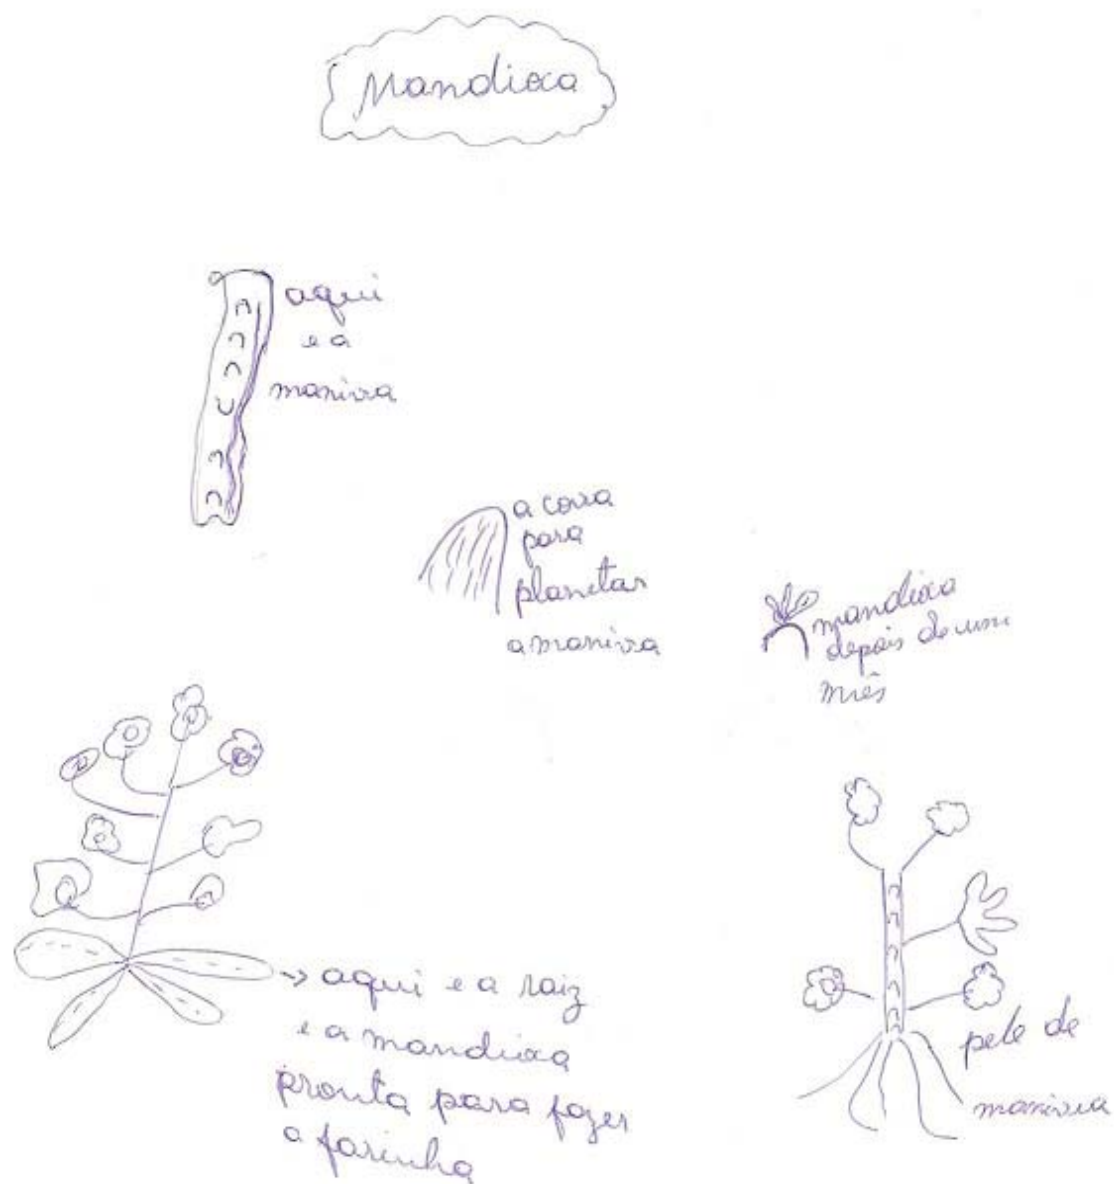 Mandioca
aqui
e a
maniva
a cova
para
plantar
a maniva
mandioca
depois de um
mês
aqui e a raiz
e a mandioca
pronta para fazer
a farinha
pele de
maniva